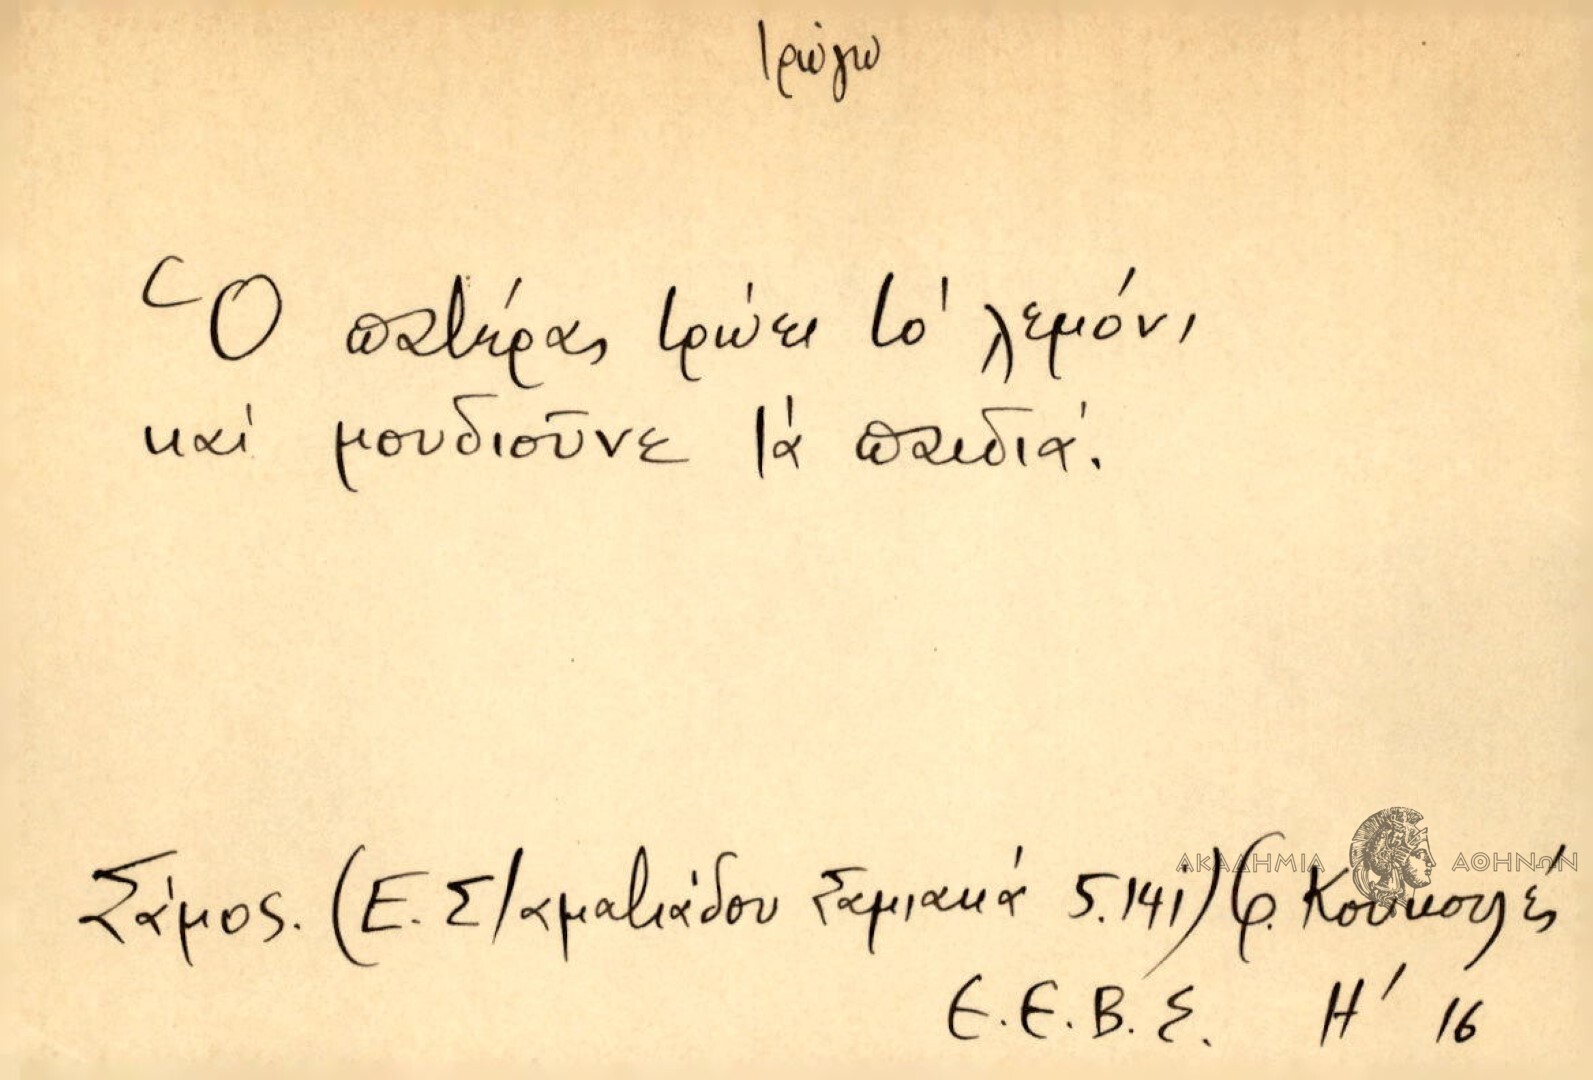 τρώγω
Ὁ πατέρας τρώει τὸ λεμόνι
καὶ μουδιοῦνε τὰ παιδιά.
ΑΚΑΔΗΜΙΑ ΑΘΗΝΩΝ
Σάμος. (Ε. Σταματιάδου Σαμιακά 5.141) Φ. Κουκουλές
Ε.Ε.Β.Σ. Η' 16